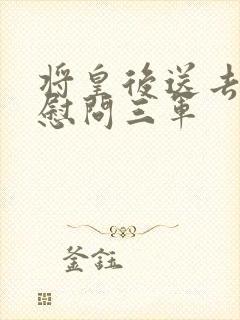 将皇後送去
慰問三軍
釜鈺